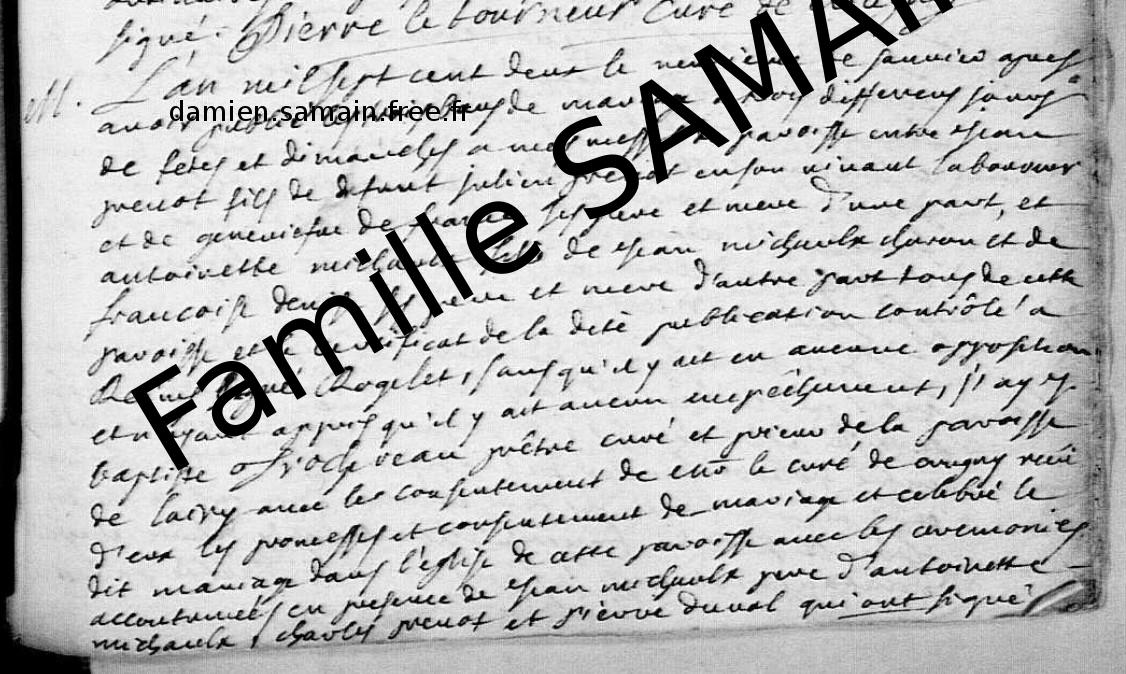 signé. Pierre le tourneur Curé de
M. L'an mil sept cent deux le neufieme de janvier apres
avoir publié les de mariage a trois differens jours
de fetes et dimanches a nos messes de paroisse entre jean
prevot fils de defunt julien prevot en son vivant laboureur
et de geneviefve de france ses pere et mere d'une part, et
antoinette michault fille de jean michault charon et de
francoise denis ses pere et mere d'autre part tous de cette
paroisse et le certificat de la dite publication contrôlé a
Reims signé Rogelet, sans qu'il y ait eu aucune opposition
et n'ayant appris qu'il y ait aucun empêchement, j'ay
baptiste prêtre curé et prieur de la paroisse
de avec les consentement de le curé de reçu
d'eux les promesses et consentement de mariage et celebré le
dit mariage dans l'église de cette paroisse avec les ceremonies
accoutumées en presence de jean michault pere d'antoinette
michault, charles prevot et Pierre duval qui ont signé
damien.samain.free.fr
Famille SAMAIN